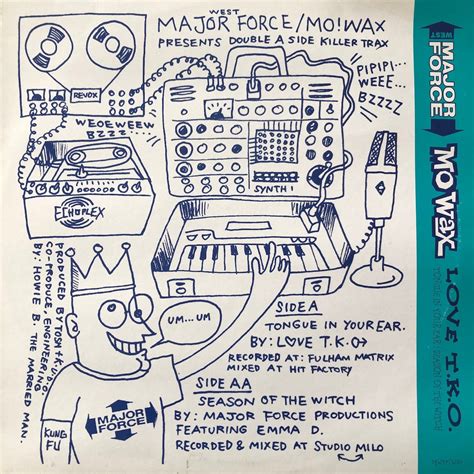 WEST
MAJOR FORCE/MO!WAX
PRESENTS DOUBLE A SIDE KILLER TRAX
REVOX
WEOEWEEW
BZZZ...
PIPIPI...
WEEE...
BZZZZ
SYNTH 1
ECHOPLEX
PRODUCED BY TOSH + K.U.D.O.
CO-PRODUCE, ENGINEERING
BY: HOWIE B. THE MARRIED MAN.
UM...UM
MAJOR
FORCE
KUNG
FU
SIDE A
TONGUE IN YOUR EAR.
BY: LOVE T.K.O
RECORDED AT: FULHAM MATRIX
MIXED AT HIT FACTORY
SIDE AA
SEASON OF THE WITCH
BY: MAJOR FORCE PRODUCTIONS
FEATURING EMMA D.
RECORDED & MIXED AT STUDIO MILO
WEST
MAJOR
FORCE
MO WAX
LOVE T.K.O.